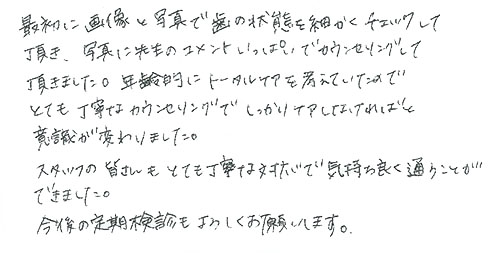 最初に画像と写真で歯の状態を細かくチェックして
頂き、写真に先生のコメントいっぱいでカウンセリングして
頂きました。年齢的にトータルケアを考えていたので
とても丁寧なカウンセリングでしっかりケアしなければと
意識が変わりました。
スタッフの皆さんもとても丁寧な対応で気持ち良く通うことが
できました。
今後の定期検診もよろしくお願いします。